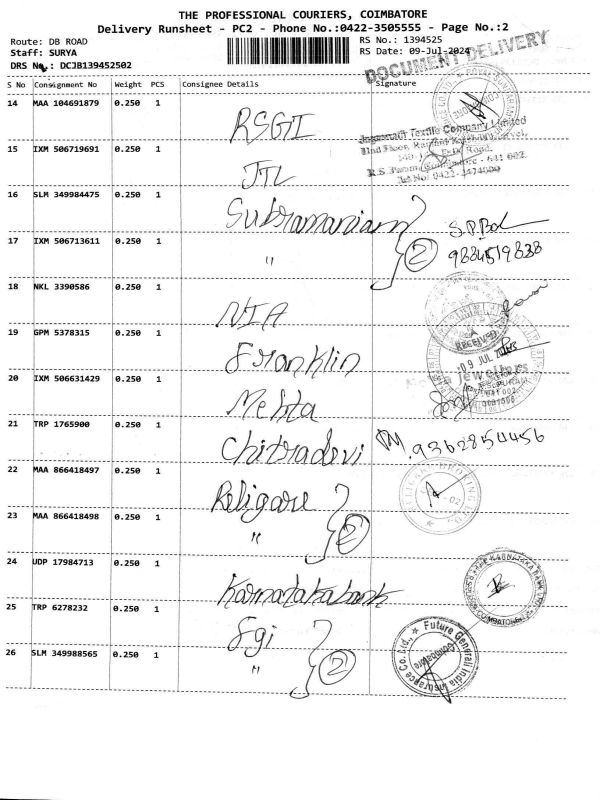 THE PROFESSIONAL COURIERS, COIMBATORE
Delivery Runsheet - PC2 - Phone No.:0422-3505555 - Page No.:2
Route: DB ROAD
Staff: SURYA
DRS No.: DCJB139452502
RS No.: 1394525
RS Date: 09-Jul-2024
DOCUMENT DELIVERY
S No Consignment No Weight PCS Consignee Details Signature
14 MAA 104691879 0.250 1 RSGI
15 IXM 506719691 1 JTL
Textile Company Limited
R.S. Puram, Coimbatore - 641 002.
16 SLM 349984475 0.250 1 Subramaniam
17 IXM 506713611 0.250 1 " 2
9884519838
18 NKL 3390586 0.250 1 NIA
19 GPM 5378315 0.250 1 Franklin
RECEIVED
09 JUL
20 IXM 506631429 0.250 1 Mehta
Jewellers
21 TRP 1765900 0.250 1 Chitradevi 9362854456
22 MAA 866418497 0.250 1 Religare
23 MAA 866418498 0.250 1 " 2
RELIGARE BROKING
24 UDP 17984713 0.250 1 Karnatakabank
COIMBATORE
25 TRP 6278232 0.250 1 Fgi
26 SLM 349988565 0.250 1 " 2
Future Generali India Insurance Co. Ltd.,
Coimbatore